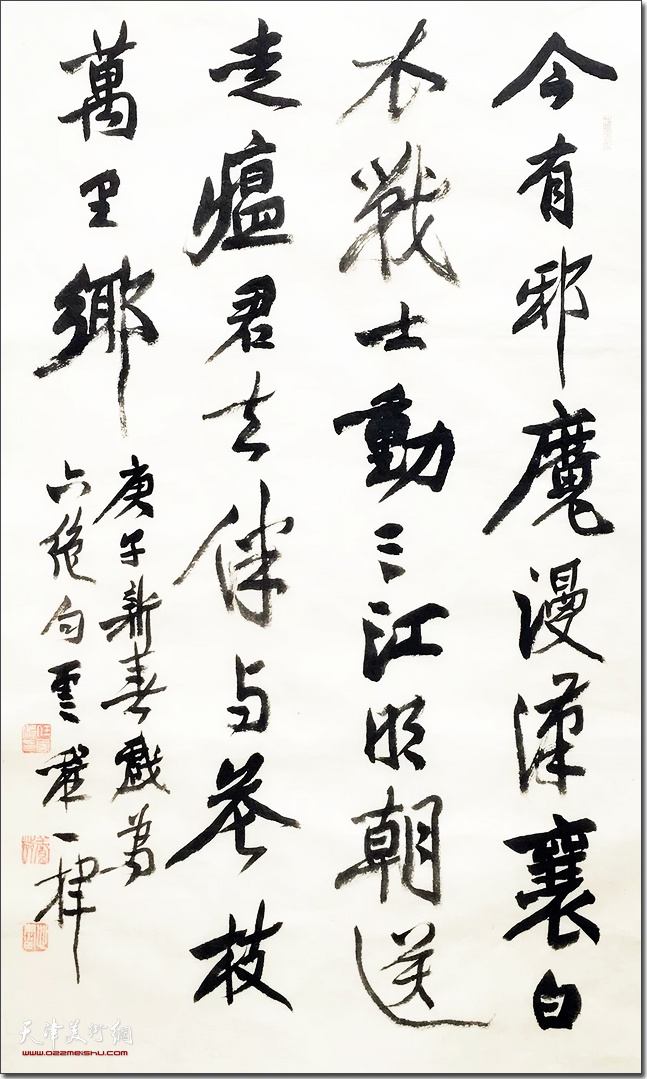 今有邪魔漫漢襄白
衣戰士動三江明朝送
走瘟君去伴与花枝
萬里鄉
庚子新春戲為
六絕句雲
天津美術網
www.022meishu.com